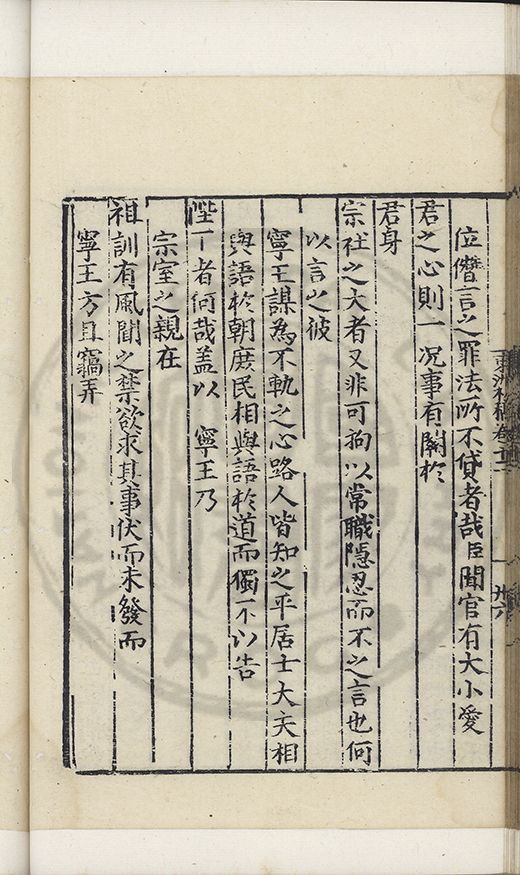 位僭言之罪法所不貸者哉臣聞官有大小愛
君之心則一况事有關於
君身
宗社之大者又非可拘以常職隱忍而不之言也何
以言之彼
寧王謀為不軌之心路人皆知之平居士大夫相
與語於朝庶民相與語於道而獨不以告
陛下者何哉盖以 寧王乃
宗室之親在
祖訓有風聞之禁欲求其事伏而未發而
寧王方且竊弄